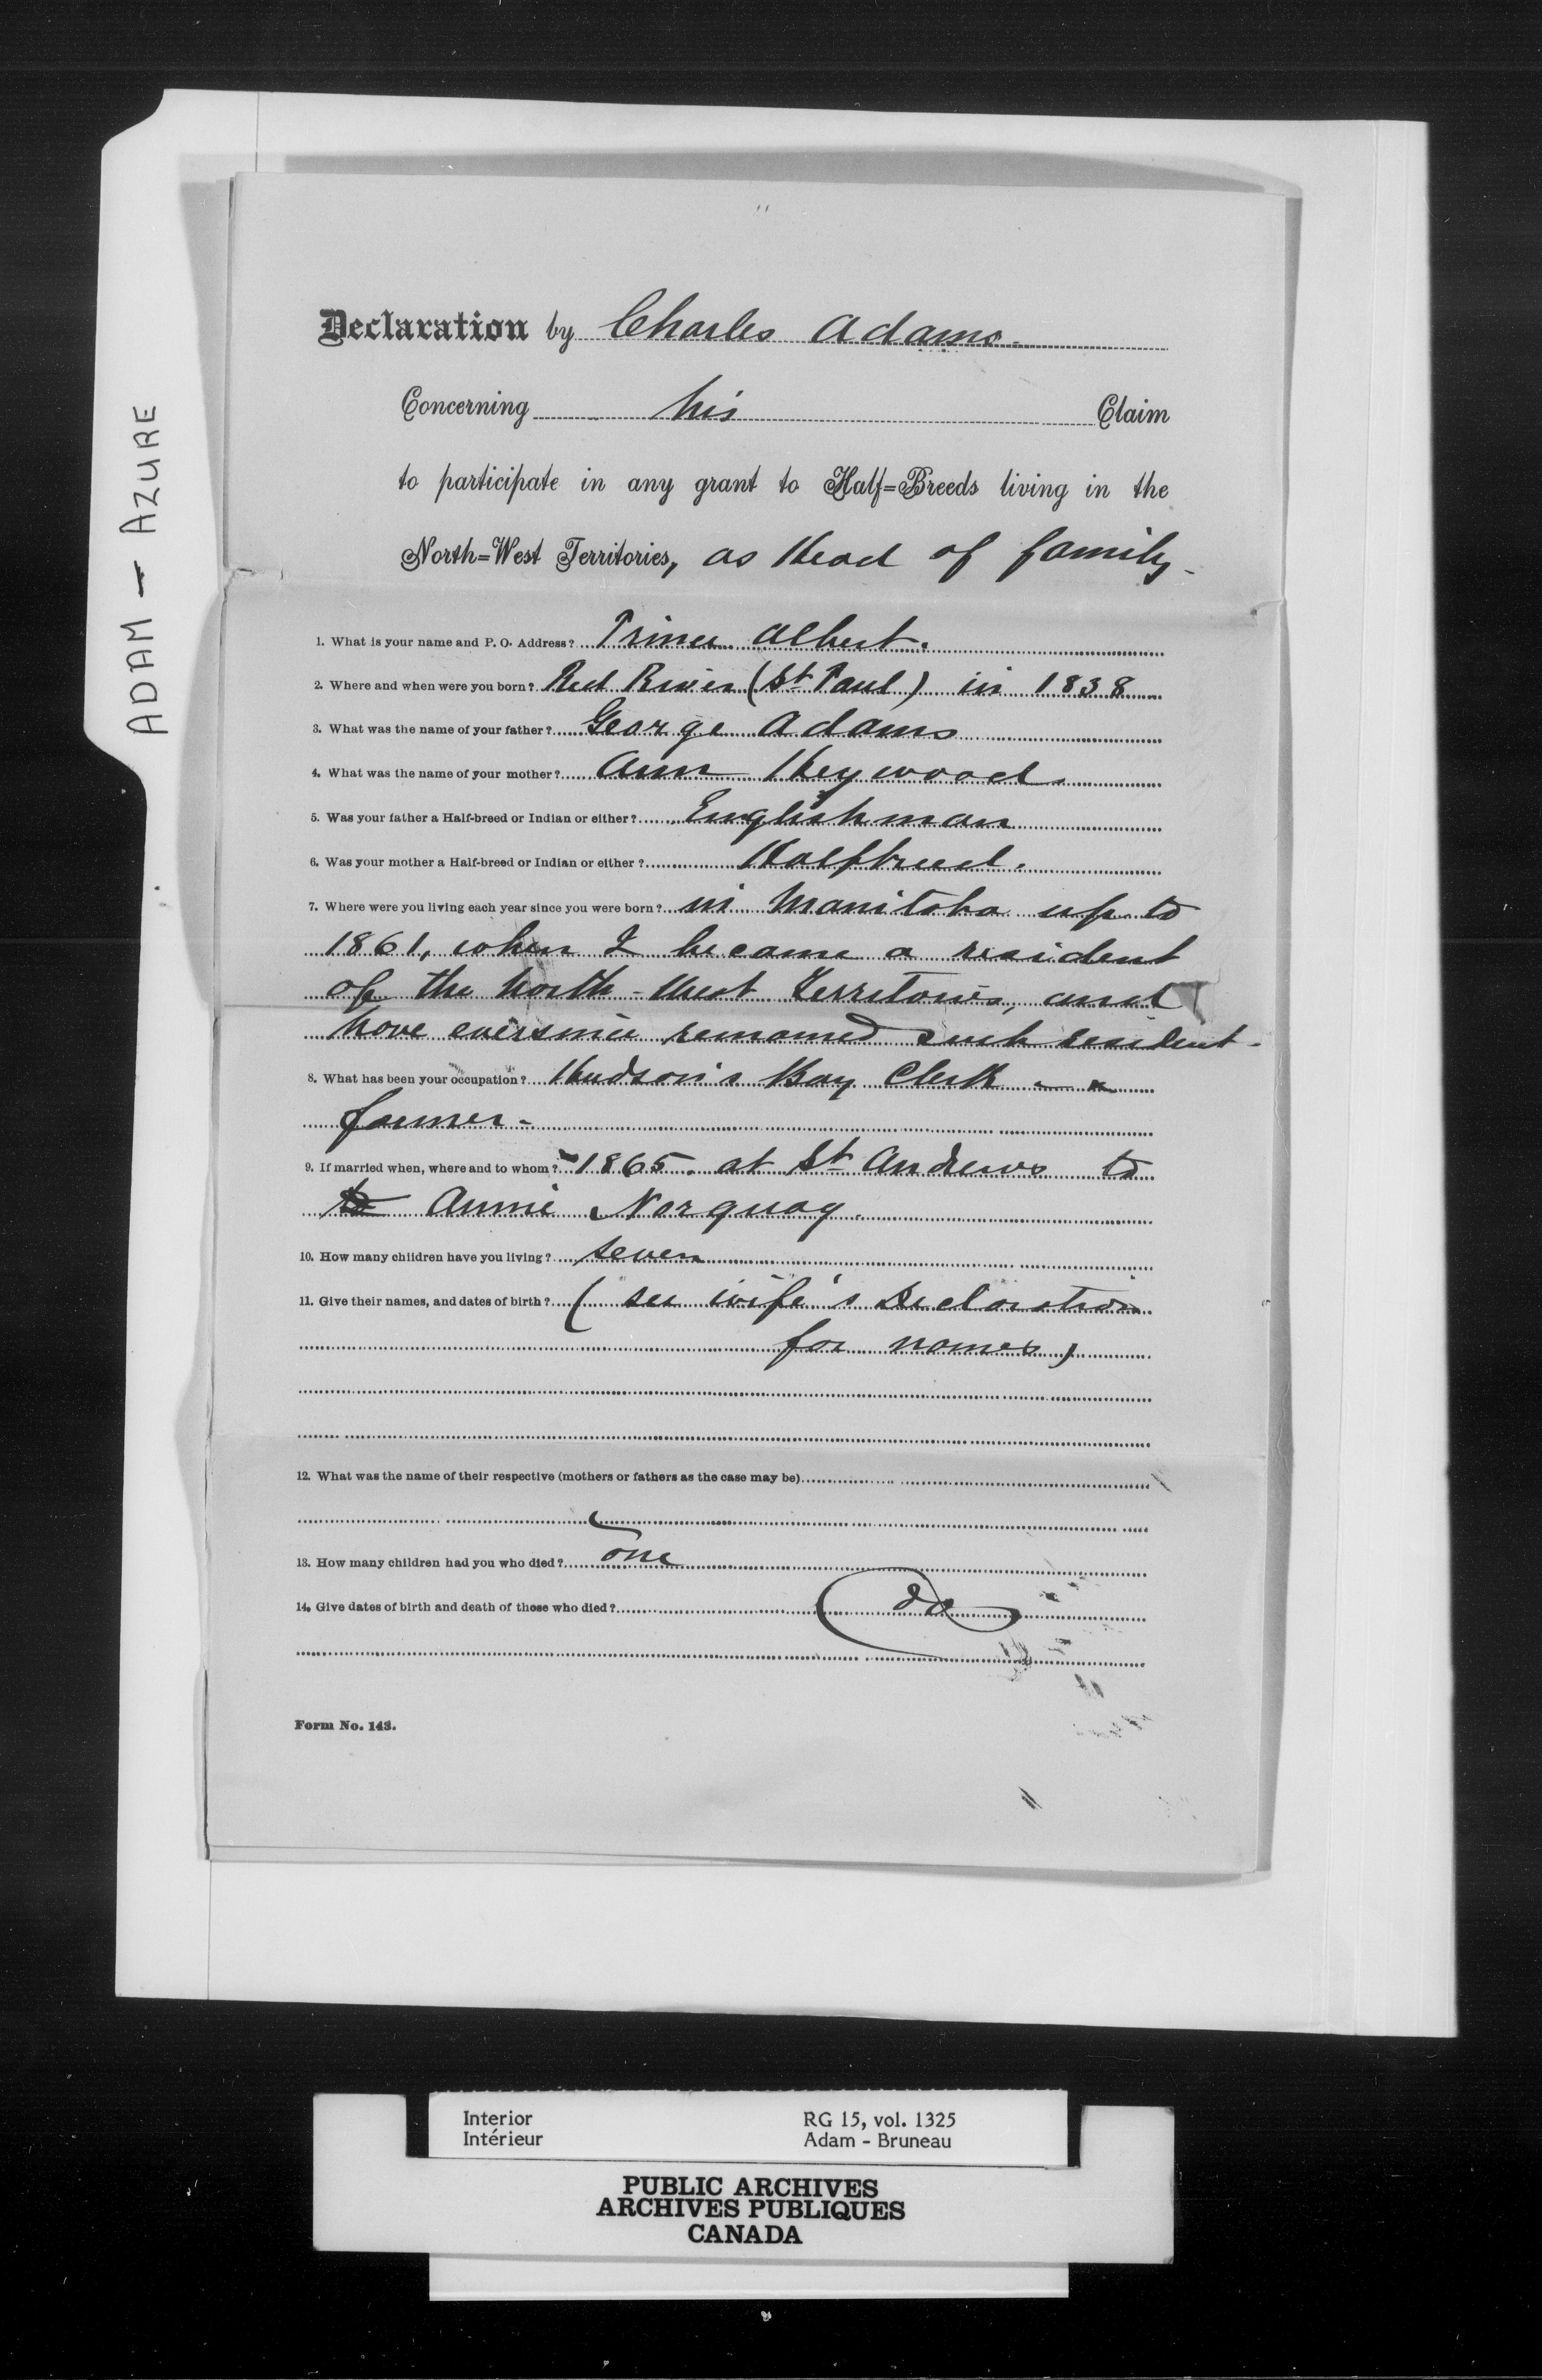 ADAM - AZURE
Declaration by Charles Adams.
Concerning his Claim
to participate in any grant to Half=Breeds living in the
North=West Territories, as Head of family -
1. What is your name and P. O. Address? Prince Albert.
2. Where and when were you born? Red River (St Paul) in 1838
3. What was the name of your father? George Adams
4. What was the name of your mother? Ann Heywood
5. Was your father a Half-breed or Indian or either? Englishman
6. Was your mother a Half-breed or Indian or either? Halfbreed.
7. Where were you living each year since you were born? in Manitoba up to
1861, when I became a resident
of the North-West Territories, and
have eversince remained such resident -
8. What has been your occupation? Hudson's Bay Clerk -
farmer -
9. If married when, where and to whom? 1865. at St Andrews to
to Annie Norquay.
10. How many children have you living? seven
11. Give their names, and dates of birth? (see wife's Declaration
for names)
12. What was the name of their respective (mothers or fathers as the case may be)
13. How many children had you who died? one
14. Give dates of birth and death of those who died? (do)
Form No. 143.
Interior RG 15, vol. 1325
Intérieur Adam - Bruneau
PUBLIC ARCHIVES
ARCHIVES PUBLIQUES
CANADA